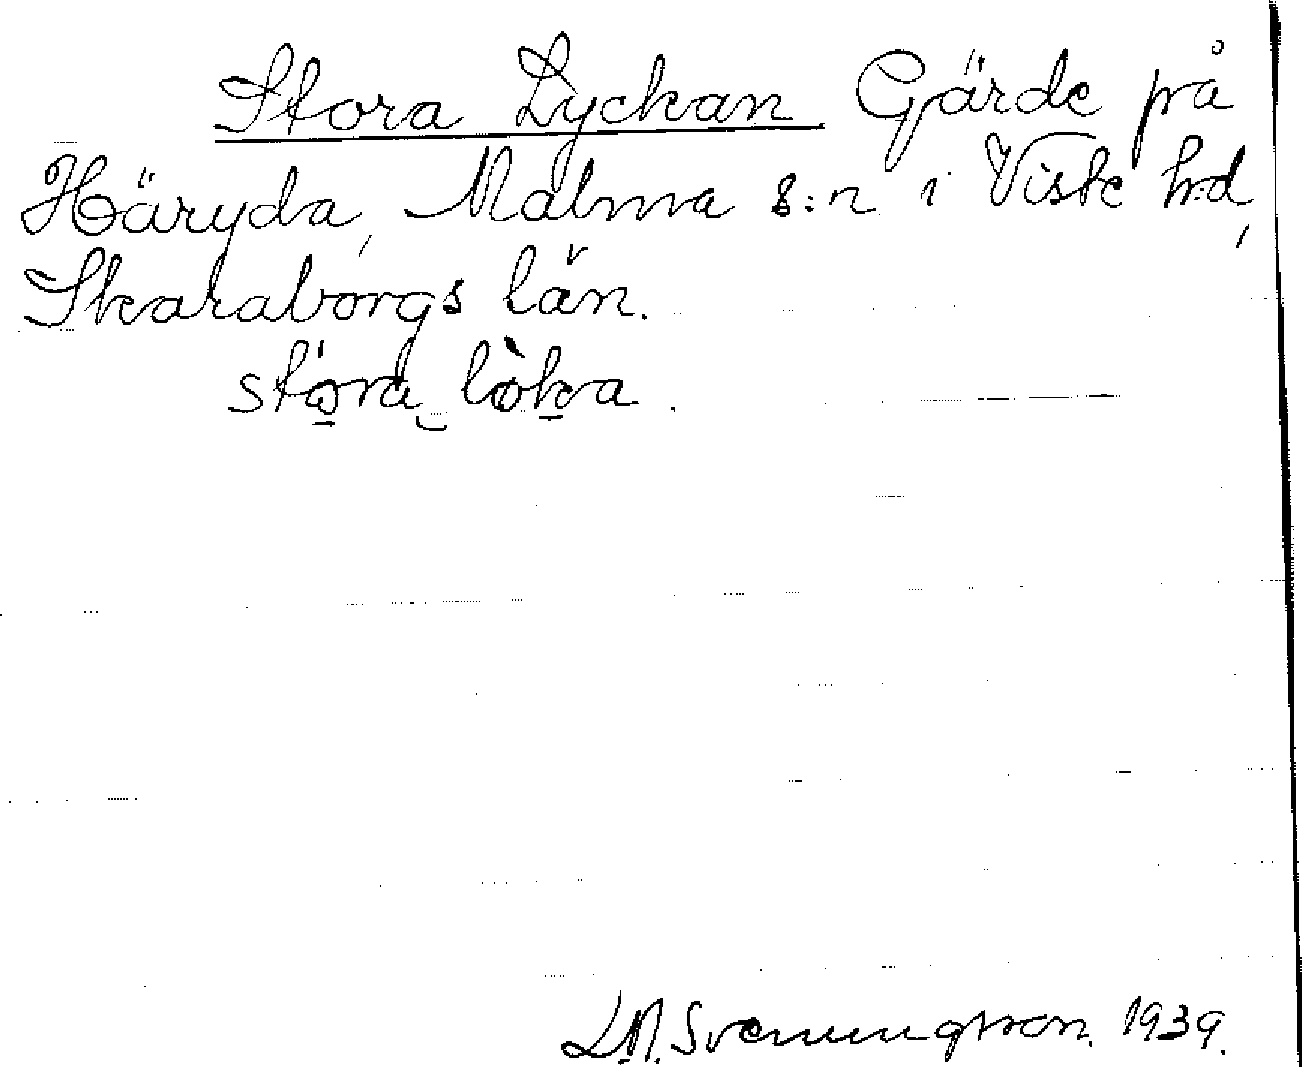 Stora Lyckan Gärde på
Häryda, Malma s:n i Viste h:d,
Skaraborgs län.
stóra lò̱ka.
L.N. Svenungsson. 1939.